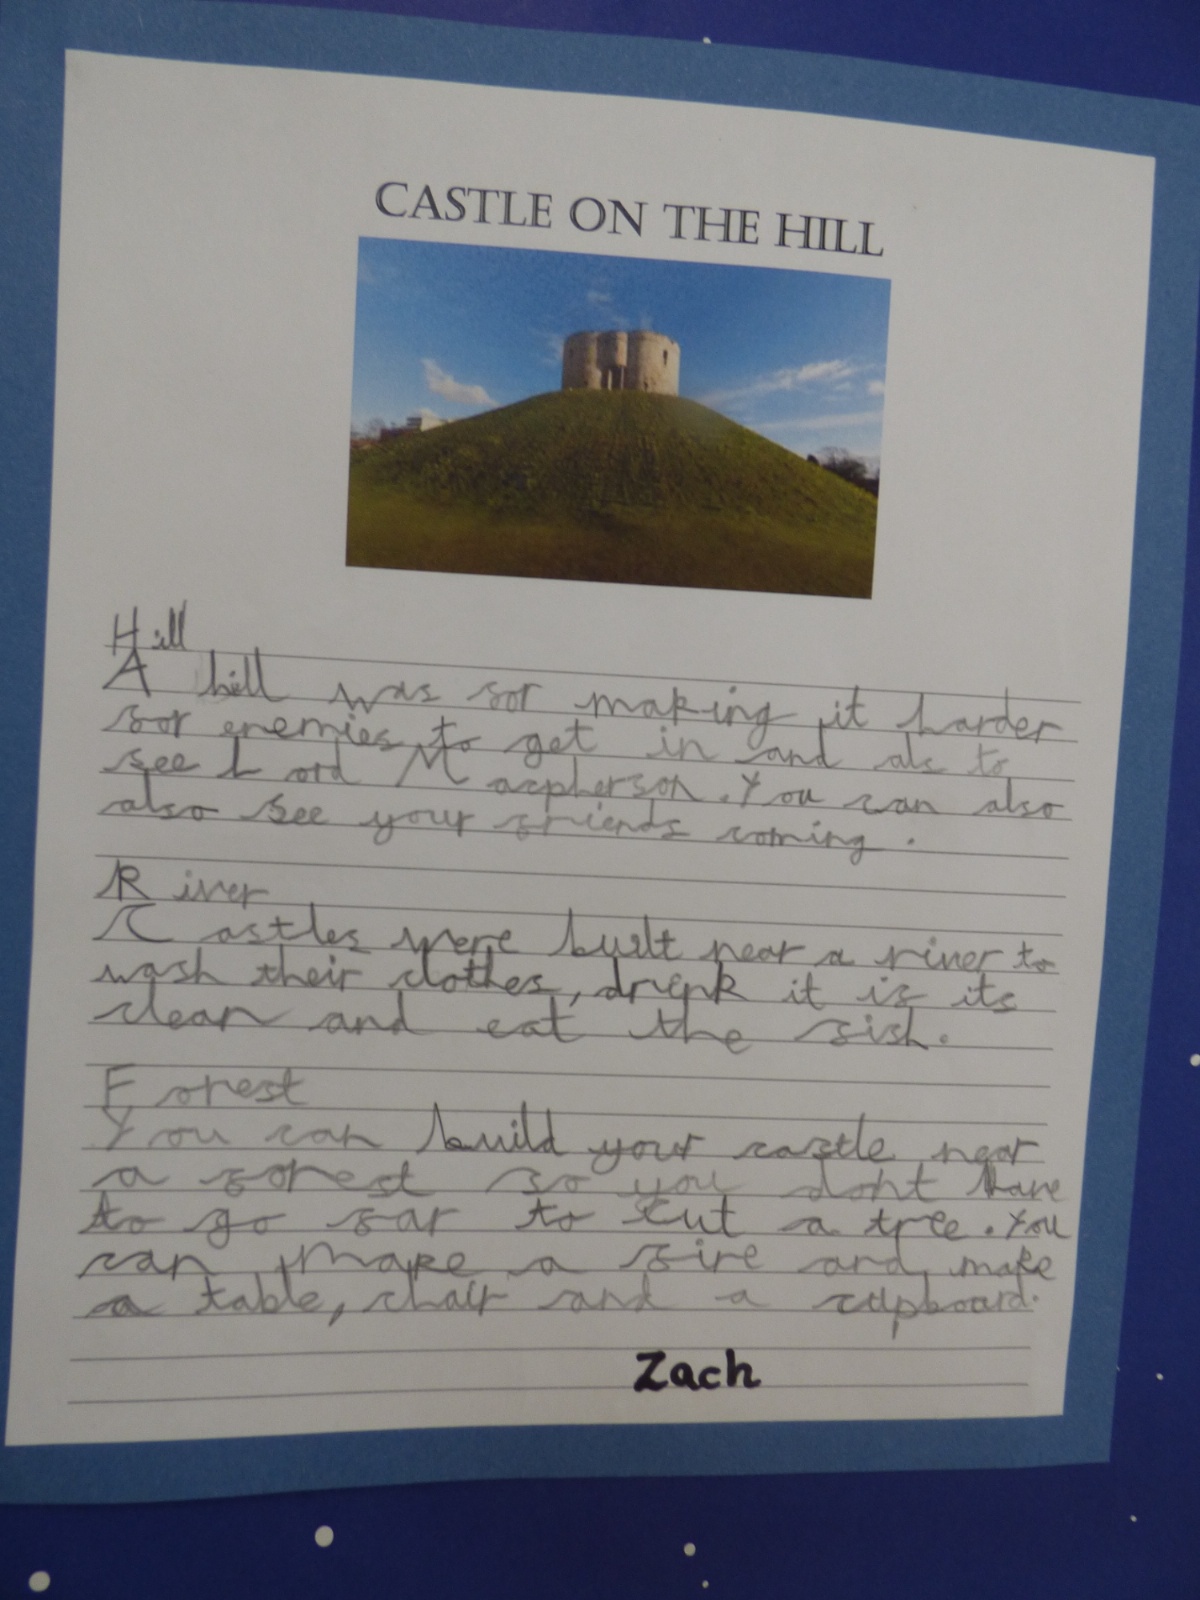 CASTLE ON THE HILL
Hill
A hill was for making it harder
for enemies to get in and als to
see Lord Macpherson. You can also
also see your friends coming.
River
Castles were built near a river to
wash their clothes, drink it is its
clean and eat the fish.
Forest
You can build your castle near
a forest so you dont have
to go far to cut a tree. You
can make a fire and make
a table, chair and a cupboard.
Zach